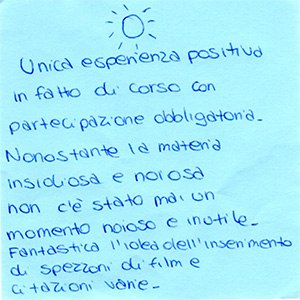 Unica esperienza positiva
in fatto di corso con
partecipazione obbligatoria.
Nonostante la materia
insidiosa e noiosa
non c'è stato mai un
momento noioso e inutile.
Fantastica l'idea dell'inserimento
di spezzoni di film e
citazioni varie.